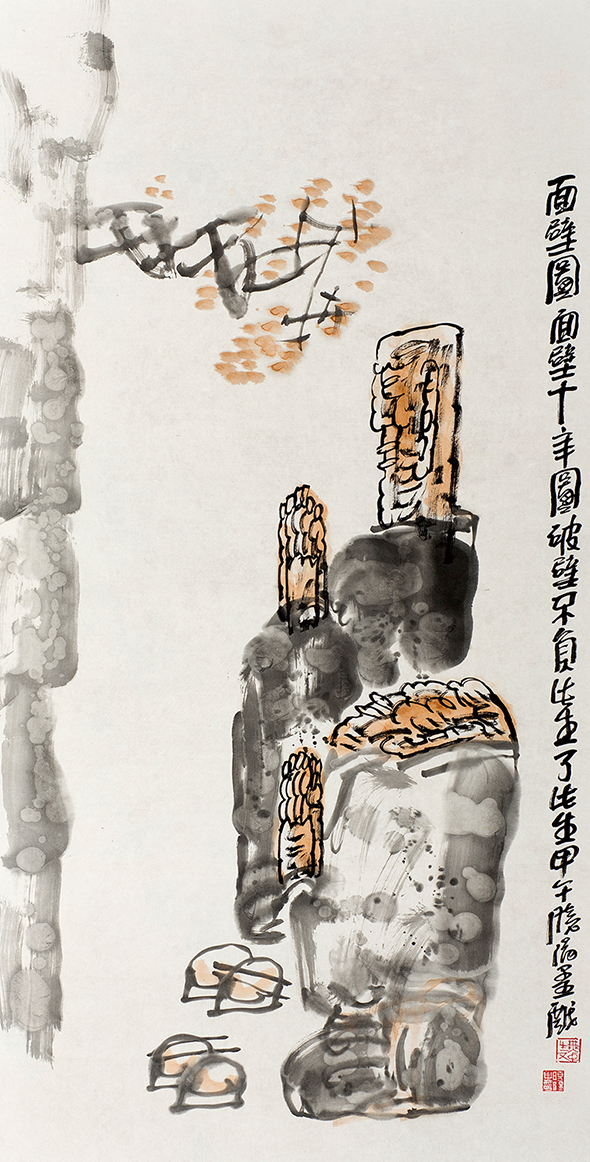 面壁圖面壁十年圖破壁不負此生了此生甲午臘滿墨戲